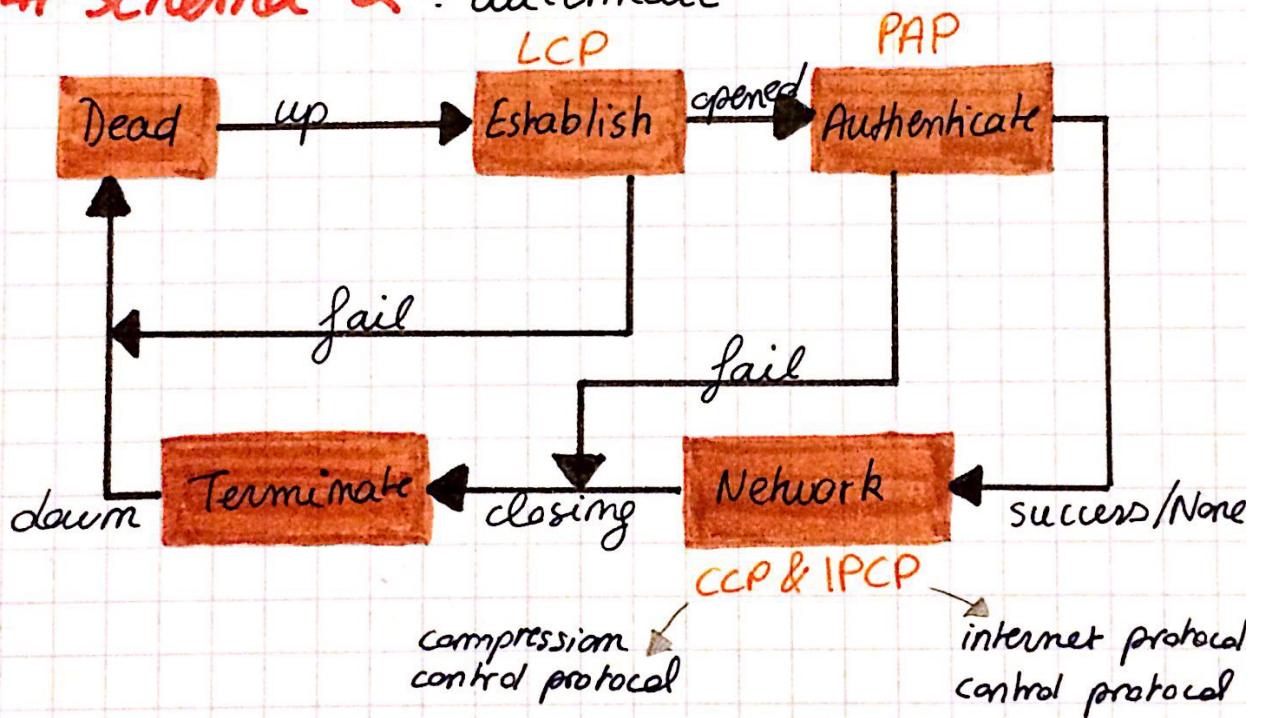 schéma
LCP
PAP
Dead
up
Establish
opened
Authenticate
fail
fail
Terminate
Network
down
closing
success/None
CCP & IPCP
compression
control protocol
internet protocol
control protocol